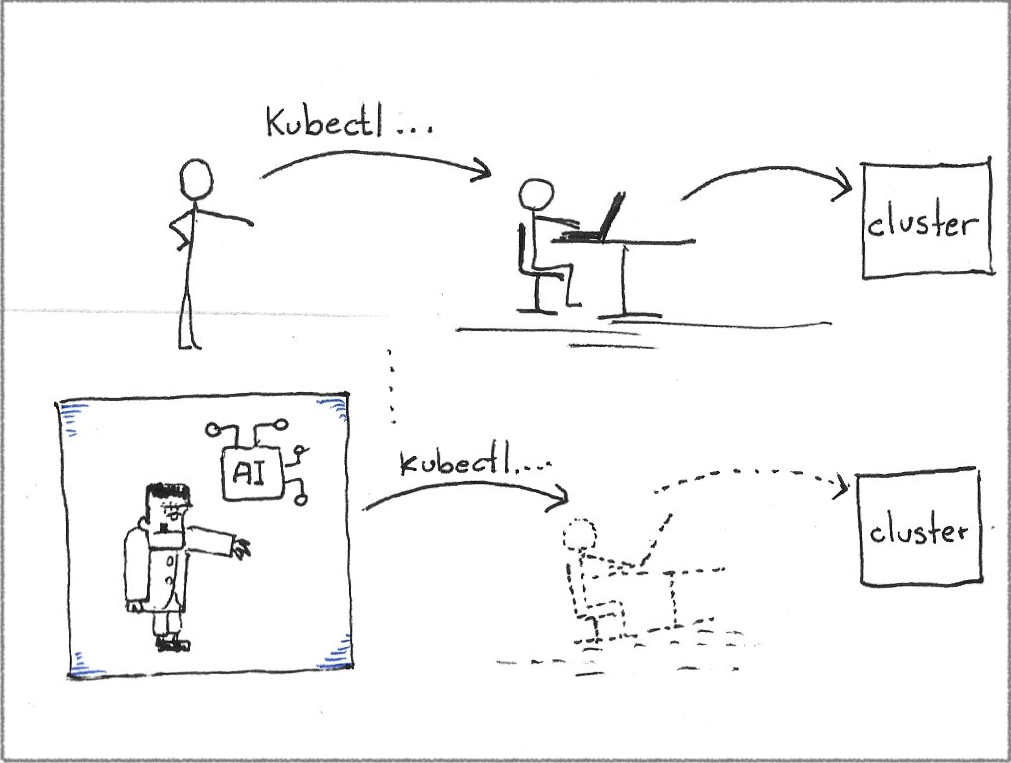 Kubectl ...
cluster
AI
kubectl....
cluster